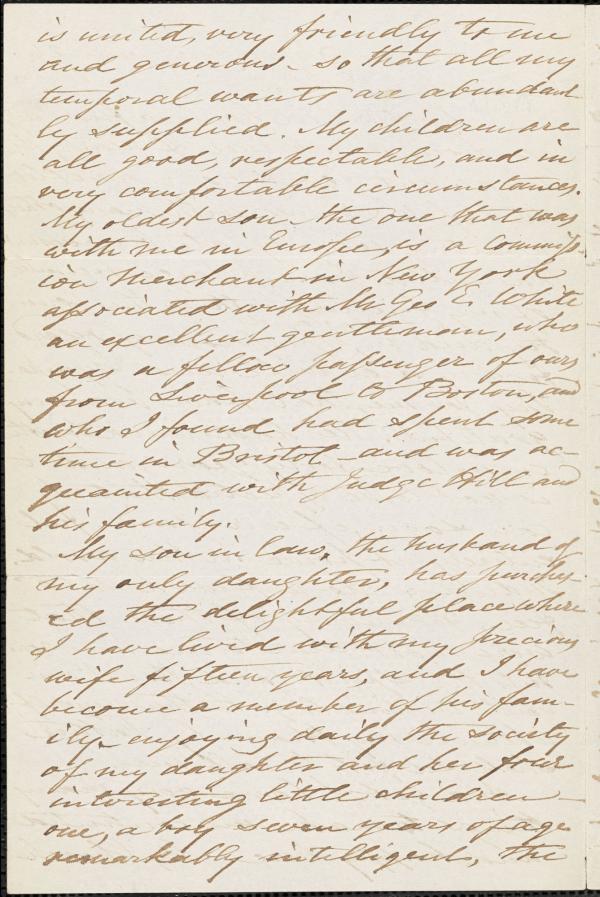 is united, very friendly to me
and generous - so that all my
temporal wants are abundant-
ly supplied. My children are
all good, respectable, and in
very comfortable circumstances.
My oldest son - the one that was
with me in Europe, is a Commiss
ion Merchant in New York
associated with Mr Geo E. White
an excellent gentleman, who
was a fellow passenger of ours
from Liverpool to Boston, and
who I found had spent some
time in Bristol - and was ac-
quainted with Judge Hill and
his family.
My son in law, the husband of
my only daughter, has purchas-
ed the delightful place where
I have lived with my precious
wife fifteen years, and I have
become a member of his fam-
ily - enjoying daily the society
of my daughter and her four
interesting little children -
one, a boy seven years of age
remarkably intelligent, the